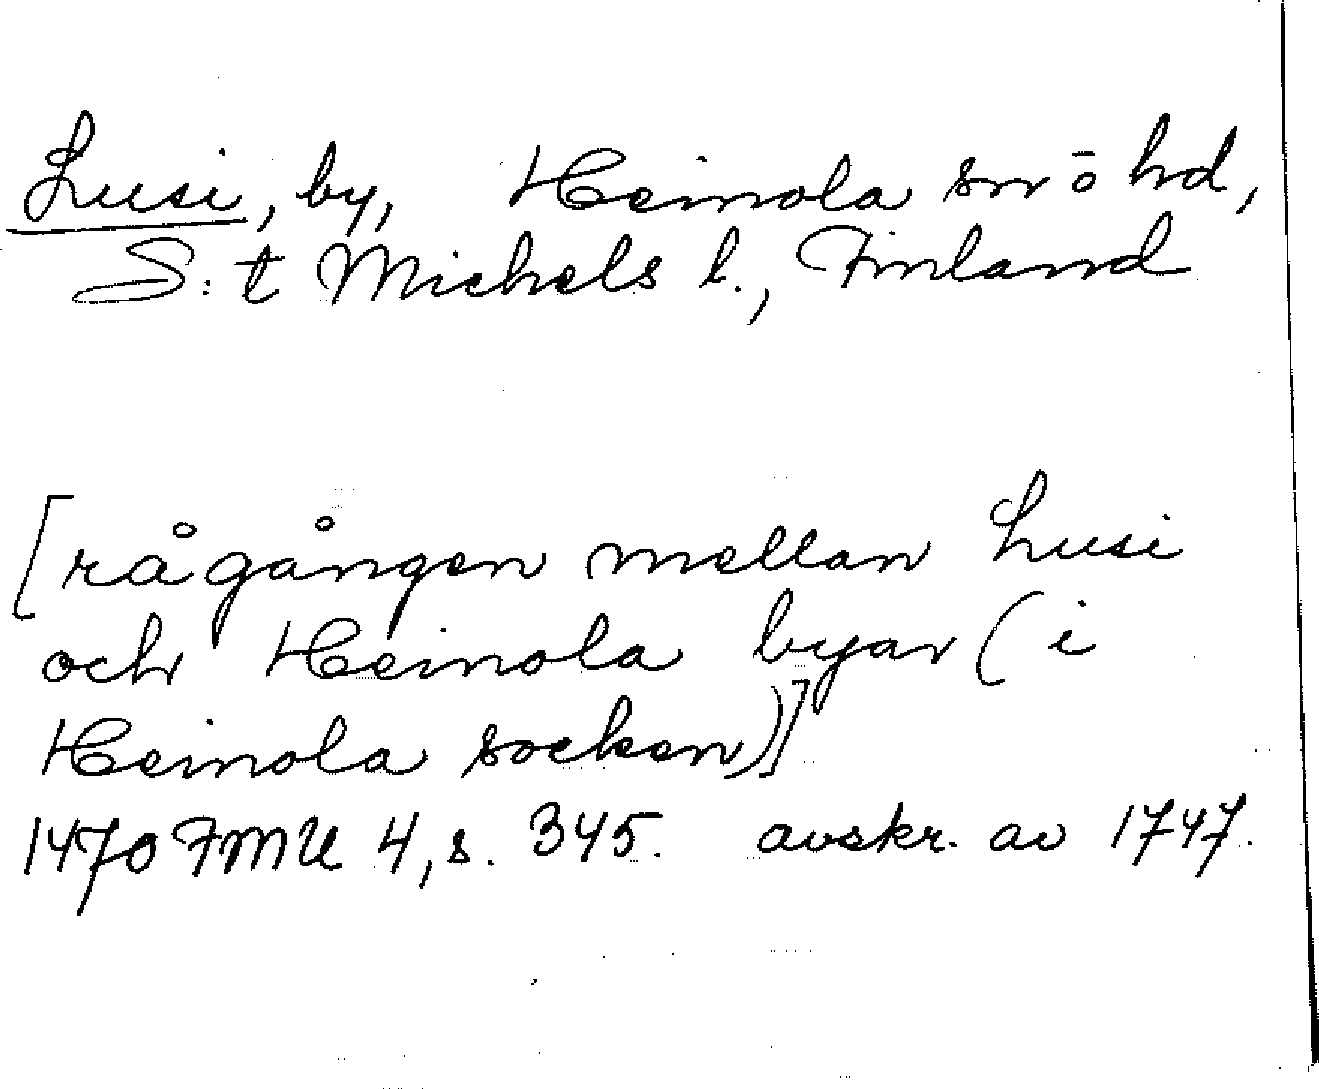 Lusi, by, Heinola sn o hd,
S:t Michels l., Finland
[rågången mellan Lusi
och Heinola byar (i
Heinola socken)]
1470 FMU 4, s. 345. avskr. av 1747.